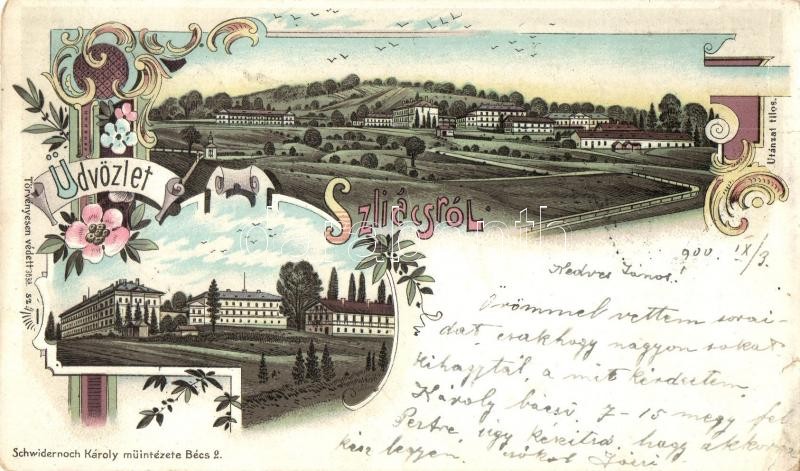 Üdvözlet
Szliácsról.
Utánzat tilos.
Törvényesen védett
900 IX/3
Kedves János!
Örömmel vettem sorai-
dat, csakhogy nagyon sokat
kihagytál, a mit kérdeztem.
Károly bácsi 7-15 megy fel
Pestre, úgy készítsd, hagy akkorra
kész legyen. csókol Józsi
Schwidernoch Károly müintézete Bécs 2.